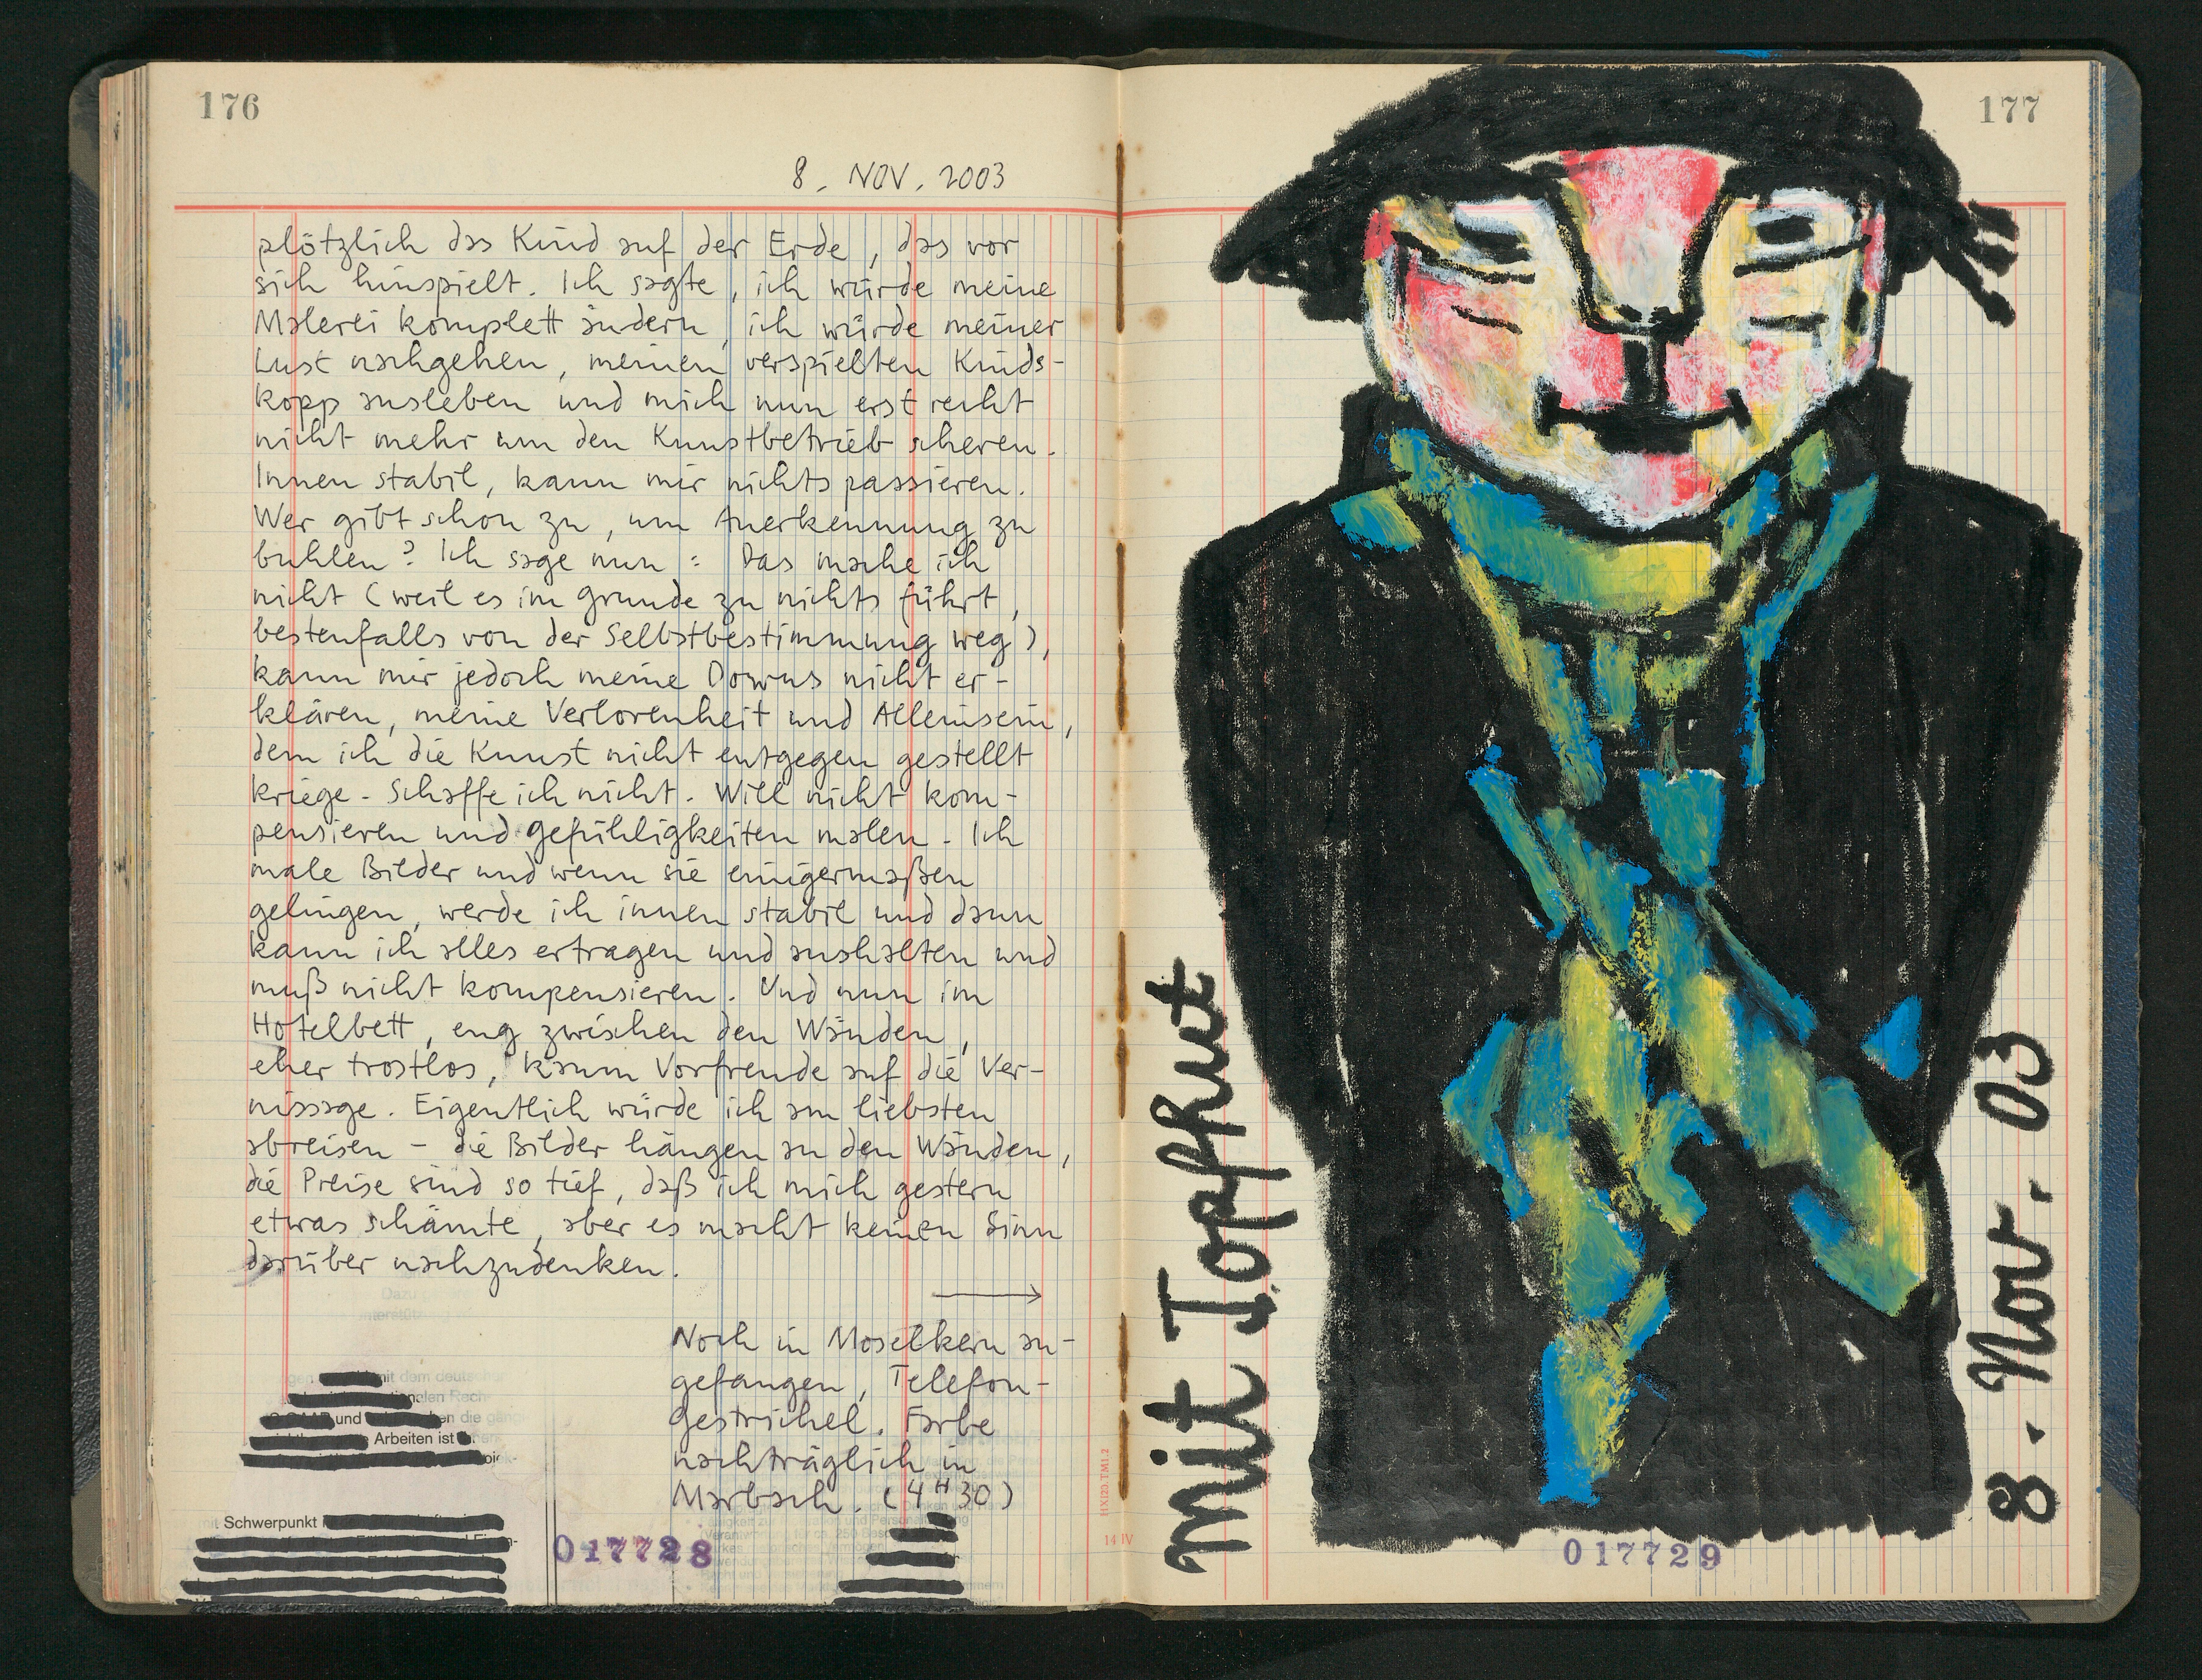 176
8. NOV. 2003
plötzlich das Kind auf der Erde, das vor
sich hinspielt. Ich sagte, ich würde meine
Malerei komplett ändern, ich würde meiner
Lust nachgehen, meinen verspielten Kinds-
kopp ausleben und mich nun erst recht
nicht mehr um den Kunstbetrieb scheren.
Innen stabil, kann mir nichts passieren.
Wer gibt schon zu, um Anerkennung zu
buhlen? Ich sage nun: Das mache ich
nicht (weil es im Grunde zu nichts führt,
bestenfalls von der Selbstbestimmung weg),
kann mir jedoch meine Downs nicht er-
klären, meine Verlorenheit und Alleinsein,
dem ich die Kunst nicht entgegen gestellt
kriege. Schaffe ich nicht. Will nicht kom-
pensieren und Gefühligkeiten malen. Ich
male Bilder und wenn sie einigermaßen
gelingen, werde ich innen stabil und dann
kann ich alles ertragen und aushalten und
muß nicht kompensieren. Und nun im
Hotelbett, eng zwischen den Wänden,
eher trostlos, kaum Vorfreude auf die Ver-
nissage. Eigentlich würde ich am liebsten
abreisen - die Bilder hängen an den Wänden,
die Preise sind so tief, daß ich mich gestern
etwas schämte, aber es macht keinen Sinn
darüber nachzudenken.
Noch in Moselkern an-
gefangen, Telefon-
gestrichel. Farbe
nachträglich in
Marbach. (4H30)
mit dem
und
Arbeiten ist
Schwerpunkt
017728
177
mit Topfhut
8. Nov. 03
HX120.TM1.2
14 IV
017729